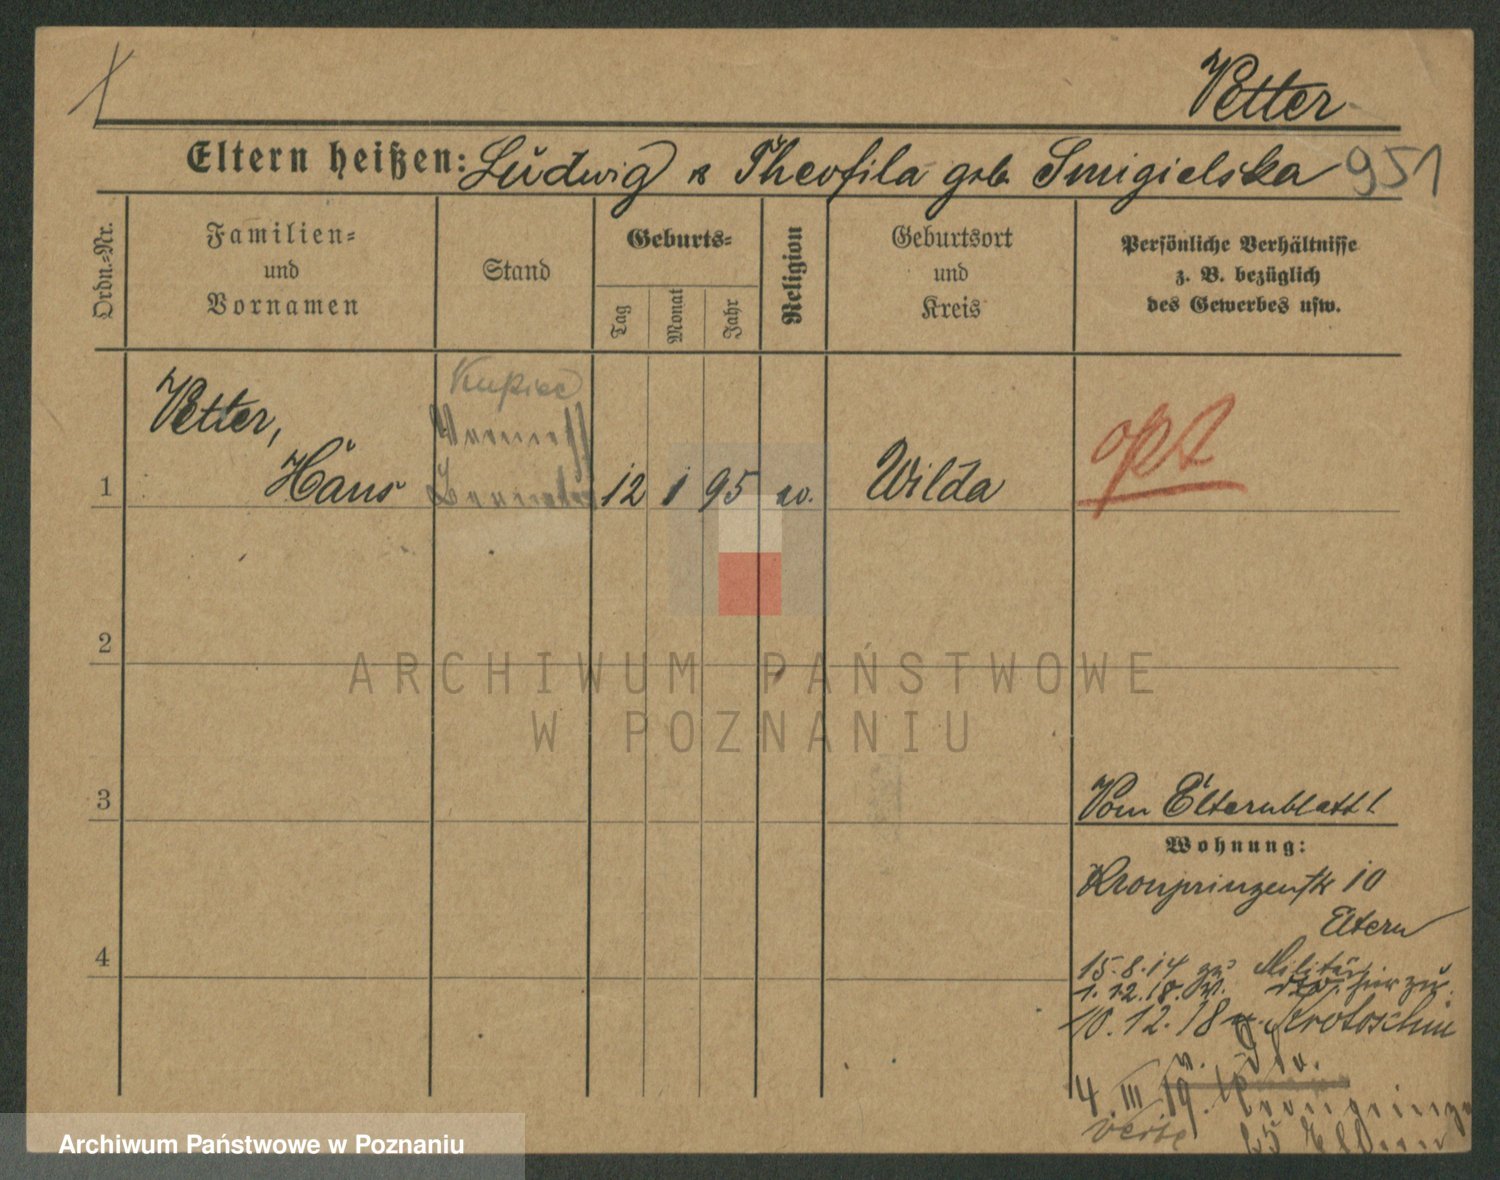 Vetter
Eltern heißen: Ludwig u Theofila geb. Smigielska 951
Ordn.-Nr.
Familien-
und
Vornamen
Stand
Geburts-
Tag
Monat
Jahr
Religion
Geburtsort
und
Kreis
Persönliche Verhältnisse
z. B. bezüglich
des Gewerbes usw.
Kupiec
Vetter,
1 Hans 12 1 95 Wilda
opt
2
3
Vom Elternblatt!
Wohnung:
Kronprinzenstr 10
Eltern
4
15.8.14 zu Militär
1.12.18. hier zu
10.12.18 n. Krotoschin
v. dto.
4.III 19. Kronprinz
Eltern
verte
ARCHIWUM PAŃSTWOWE
W POZNANIU
Archiwum Państwowe w Poznaniu